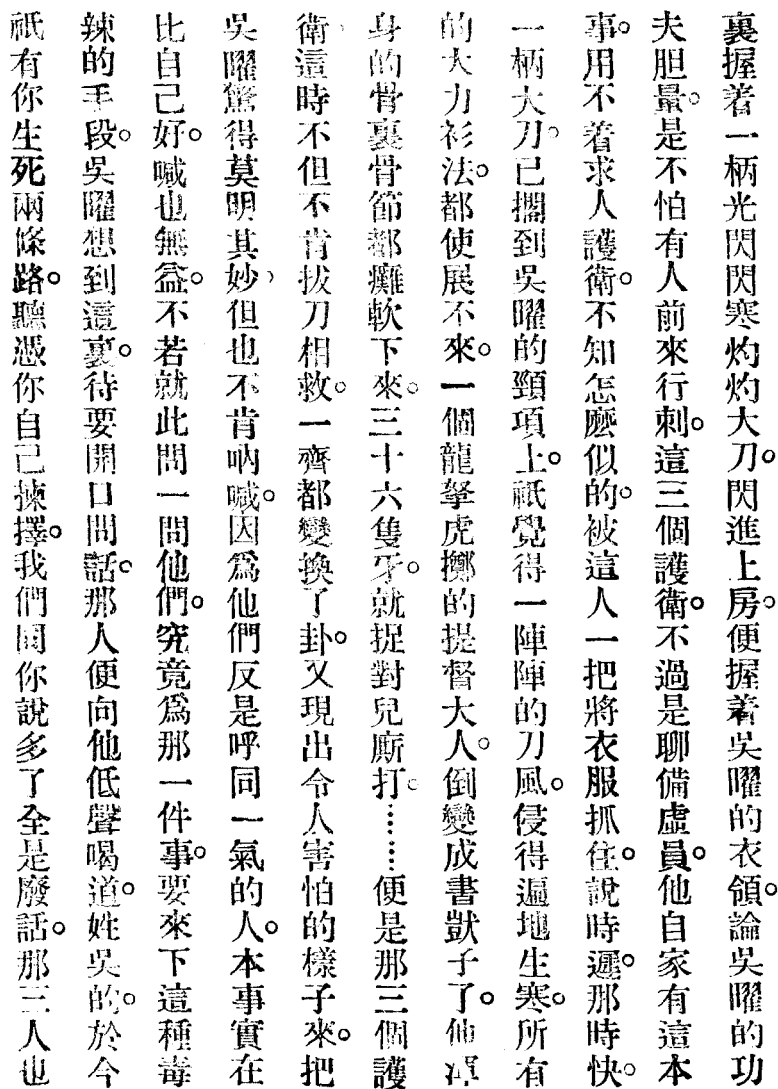 裏握着一柄光閃閃寒灼灼大刀。閃進上房。便握着吳曜的衣領。論吳曜的功
夫胆量。是不怕有人前來行刺。這三個護衛。不過是聊備虛員。他自家有這本
事。用不着求人護衛。不知怎麽似的。被這人一把將衣服抓住。說時遲。那時快。
一柄大刀。已擱到吳曜的頸項上。祇覺得一陣陣的刀風。侵得遍地生寒。所有
的大力衫法。都使展不來。一個龍拏虎擲的提督大人。倒變成書獃子了。他渾
身的骨裏骨節都癱軟下來。三十六隻牙。就捉對兒廝打。……便是那三個護
衛、這時不但不肯拔刀相救。一齊都變換了卦。又現出令人害怕的樣子來。把
吳曜驚得莫明其妙、但也不肯吶喊。因爲他們反是呼同一氣的人。本事實在
比自己好。喊也無益。不若就此問一問他們。究竟爲那一件事。要來下這種毒
辣的手段。吳曜想到這裏。待要開口問話。那人便向他低聲喝道。姓吳的。於今
祇有你生死兩條路。聽憑你自己揀擇。我們同你說多了全是廢話。那三人也